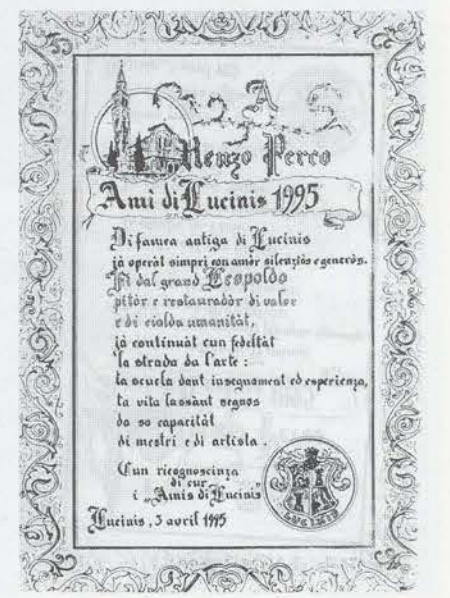 A
Renzo Perco
Amì di Lucinis 1995
Di famea antiga di Lucinis
jà operât simpri con amôr silenziôs e generôs.
Fi dal grand Leopoldo
pitôr e restauradôr di valor
e di cialda umanitât,
jà continuât cun fedeltât
la strada da l'arte :
ta scuela dant insegnament ed esperienza,
ta vita lassânt segnos
da so capacitât
di mestri e di artista .
Cun ricognoscinza
di cûr
i „Amis di Lucinis"
Lucinis, 3 avril 1995
LUCINIS